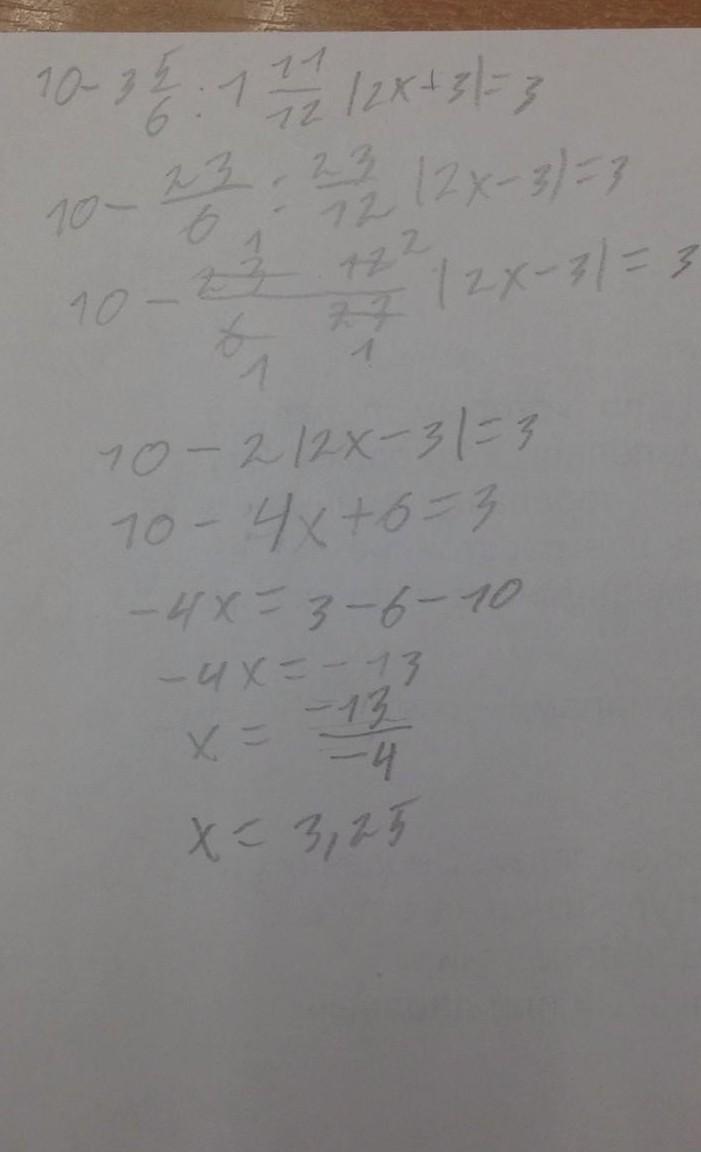 10 - 3 5/6 : 1 11/12 |2x+3|=3
10 - 23/6 : 23/12 |2x-3|=3
10 - 23 1 12 2 / 6 1 23 1 |2x-3|=3
10 - 2|2x-3|=3
10 - 4x+6=3
-4x=3-6-10
-4x=-13
x= -13/-4
x= 3,25